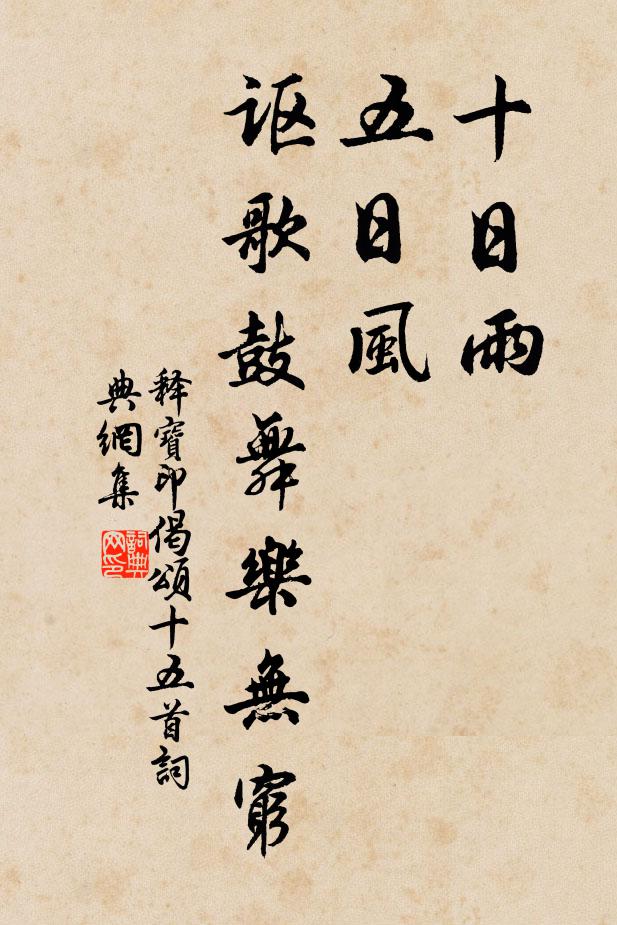 十日雨
五日風
讴歌鼓舞樂無窮
释寶印偈頌十五首詞
典網集
詞典
网印